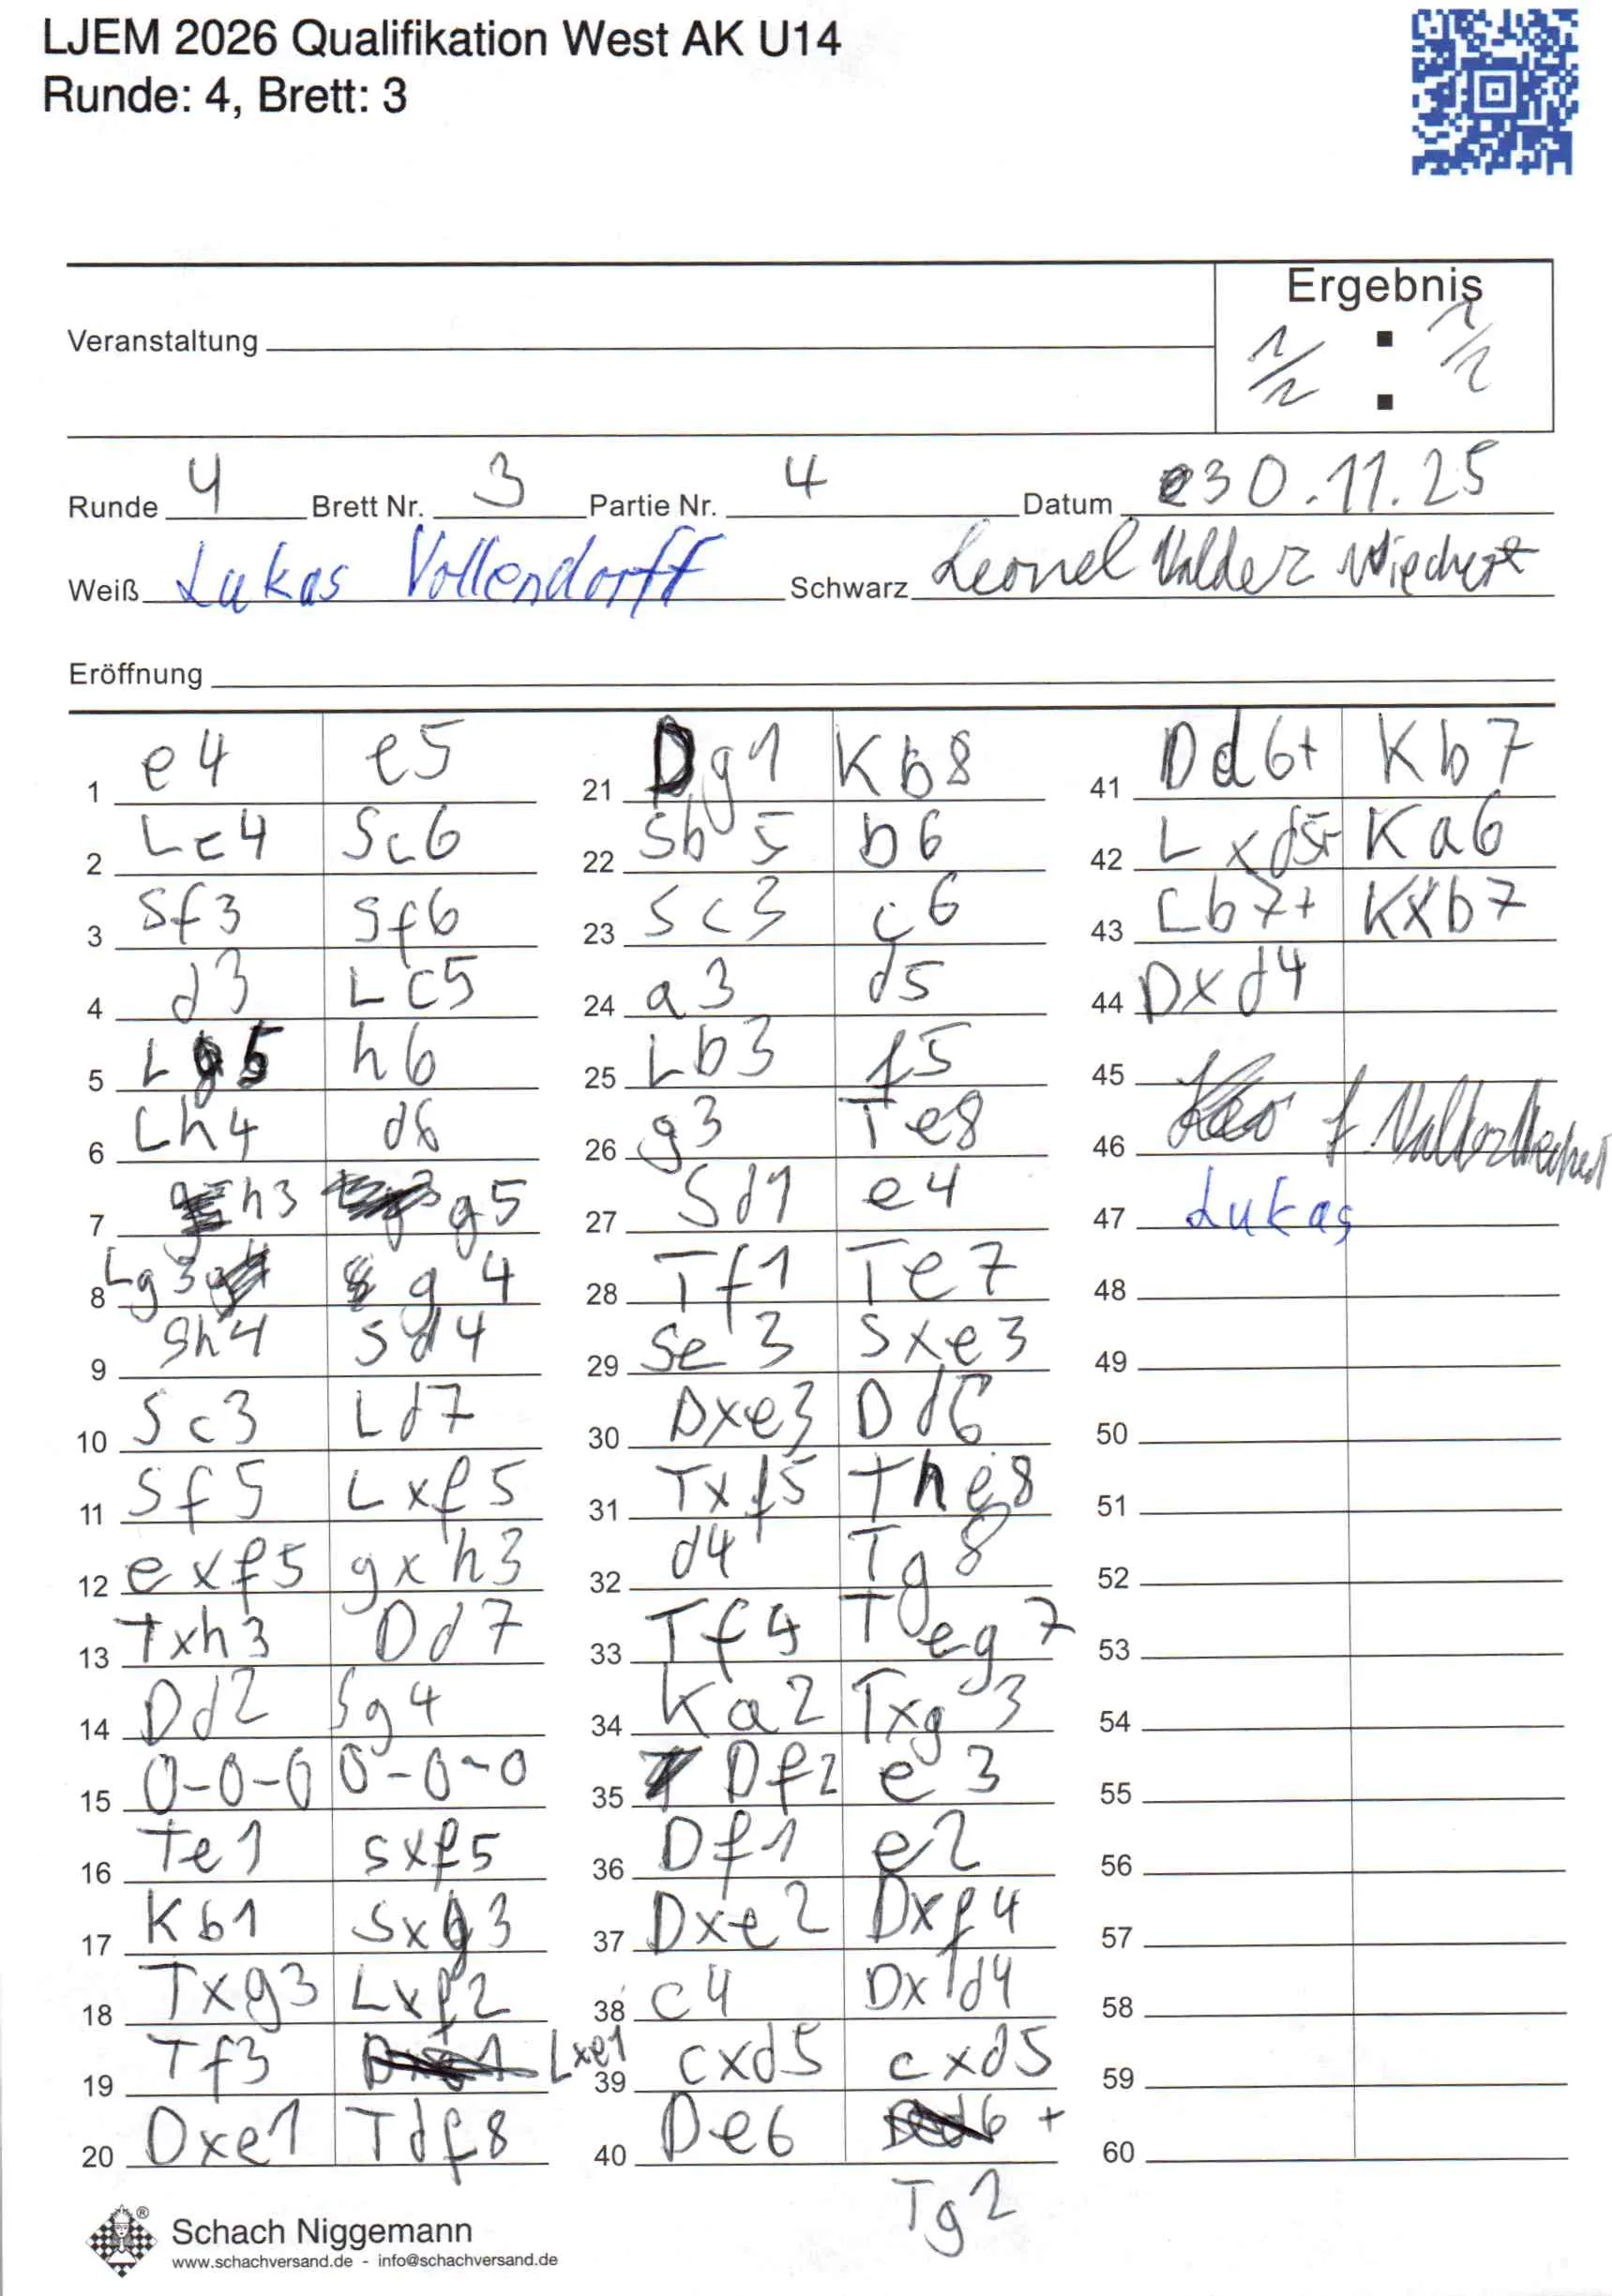 LJEM 2026 Qualifikation West AK U14
Runde: 4, Brett: 3
Ergebnis
Veranstaltung
1/2 : 1/2
Runde 4 Brett Nr. 3 Partie Nr. 4 Datum 30.11.25
Weiß Lukas Vollendorff Schwarz Leonel Valdez Wiechert
Eröffnung
1 e4 e5
2 Lc4 Sc6
3 Sf3 Sf6
4 d3 Lc5
5 Lg5 h6
6 Lh4 d6
7 h3 g5
8 Lg3 g4
9 Sh4 Sd4
10 Sc3 Ld7
11 Sf5 Lxf5
12 exf5 gxh3
13 Txh3 Dd7
14 Dd2 Sg4
15 0-0-0 0-0-0
16 Te1 Sxf5
17 Kb1 Sxg3
18 Txg3 Lxf2
19 Tf3 Lxe1
20 Dxe1 Tdf8
21 Dg1 Kb8
22 Sb5 b6
23 Sc3 c6
24 a3 d5
25 Lb3 f5
26 g3 Te8
27 Sd1 e4
28 Tf1 Te7
29 Se3 Sxe3
30 Dxe3 Dd6
31 Txf5 The8
32 d4 Tg8
33 Tf4 Teg7
34 Ka2 Txg3
35 Df2 e3
36 Df1 e2
37 Dxe2 Dxf4
38 c4 Dxd4
39 cxd5 cxd5
40 De6 Tg2
41 Dd6+ Kb7
42 Lxd5+ Ka6
43 Lb7+ Kxb7
44 Dxd4
45
46
47 Lukas
48
49
50
51
52
53
54
55
56
57
58
59
60
Schach Niggemann
www.schachversand.de - info@schachversand.de